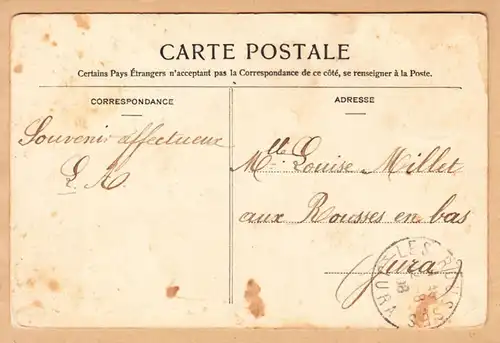 CARTE POSTALE
Certains Pays Étrangers n'acceptant pas la Correspondance de ce côté, se renseigner à la Poste.
CORRESPONDANCE
ADRESSE
Souvenir affectueux
L. A.
Mlle Louise Millet
aux Rousses en bas
Jura
LES
JURA